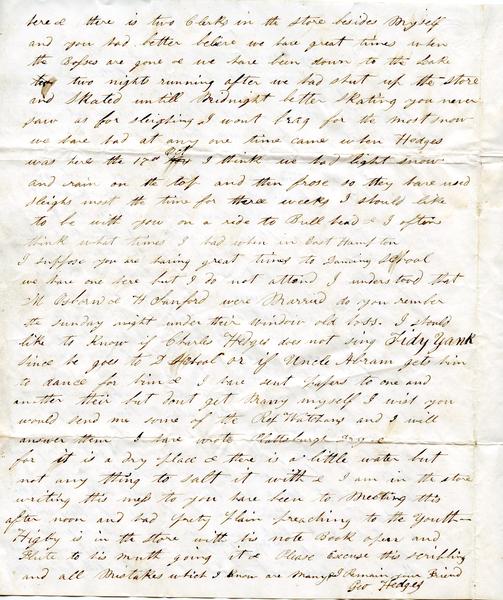 here & there is two Clerks in the store besides Myself
and you had better believe we have great times when
the Bosses are gone & we have been down to the Lake
two nights running after we had shut up the store
and Skated untill Midnight better skating you never
saw as for sleighing I wont brag for the most snow
we have had at any one time came when Hedges
was here the 17th I think we had light snow
and rain on the top and then frose so they have used
sleighs most the time for three weeks I should like
to be with you on a ride to Bull head & I often
think what times I had when in East Hampton
I suppose you are having great times to Dancing School
we have one here but I do not attend I understood that
M Osborn & H Sanford were Married do you rember
the sunday night under their window old boss. I should
like to Know if Charles Hedges does not sing Tidy Yank
since he goes to D School or if Uncle Abram gets him
to dance for him & I have sent papers to one and
another their but dont get many myself I wish you
would send me some of the and I will
answer them I have wrote Plattsburgh
for it is a dry place & there is a little water but
not any thing to salt it with & I am in the store
writing this mess to you have been to Meeting this
after noon and had pretty Plain preaching to the Youth—
Higby is in the store with his note Book open and
Flute to his mouth going it & Please Excuse this scribling
and all Mistakes which I Know are many I Remain your Friend
Geo Hedges